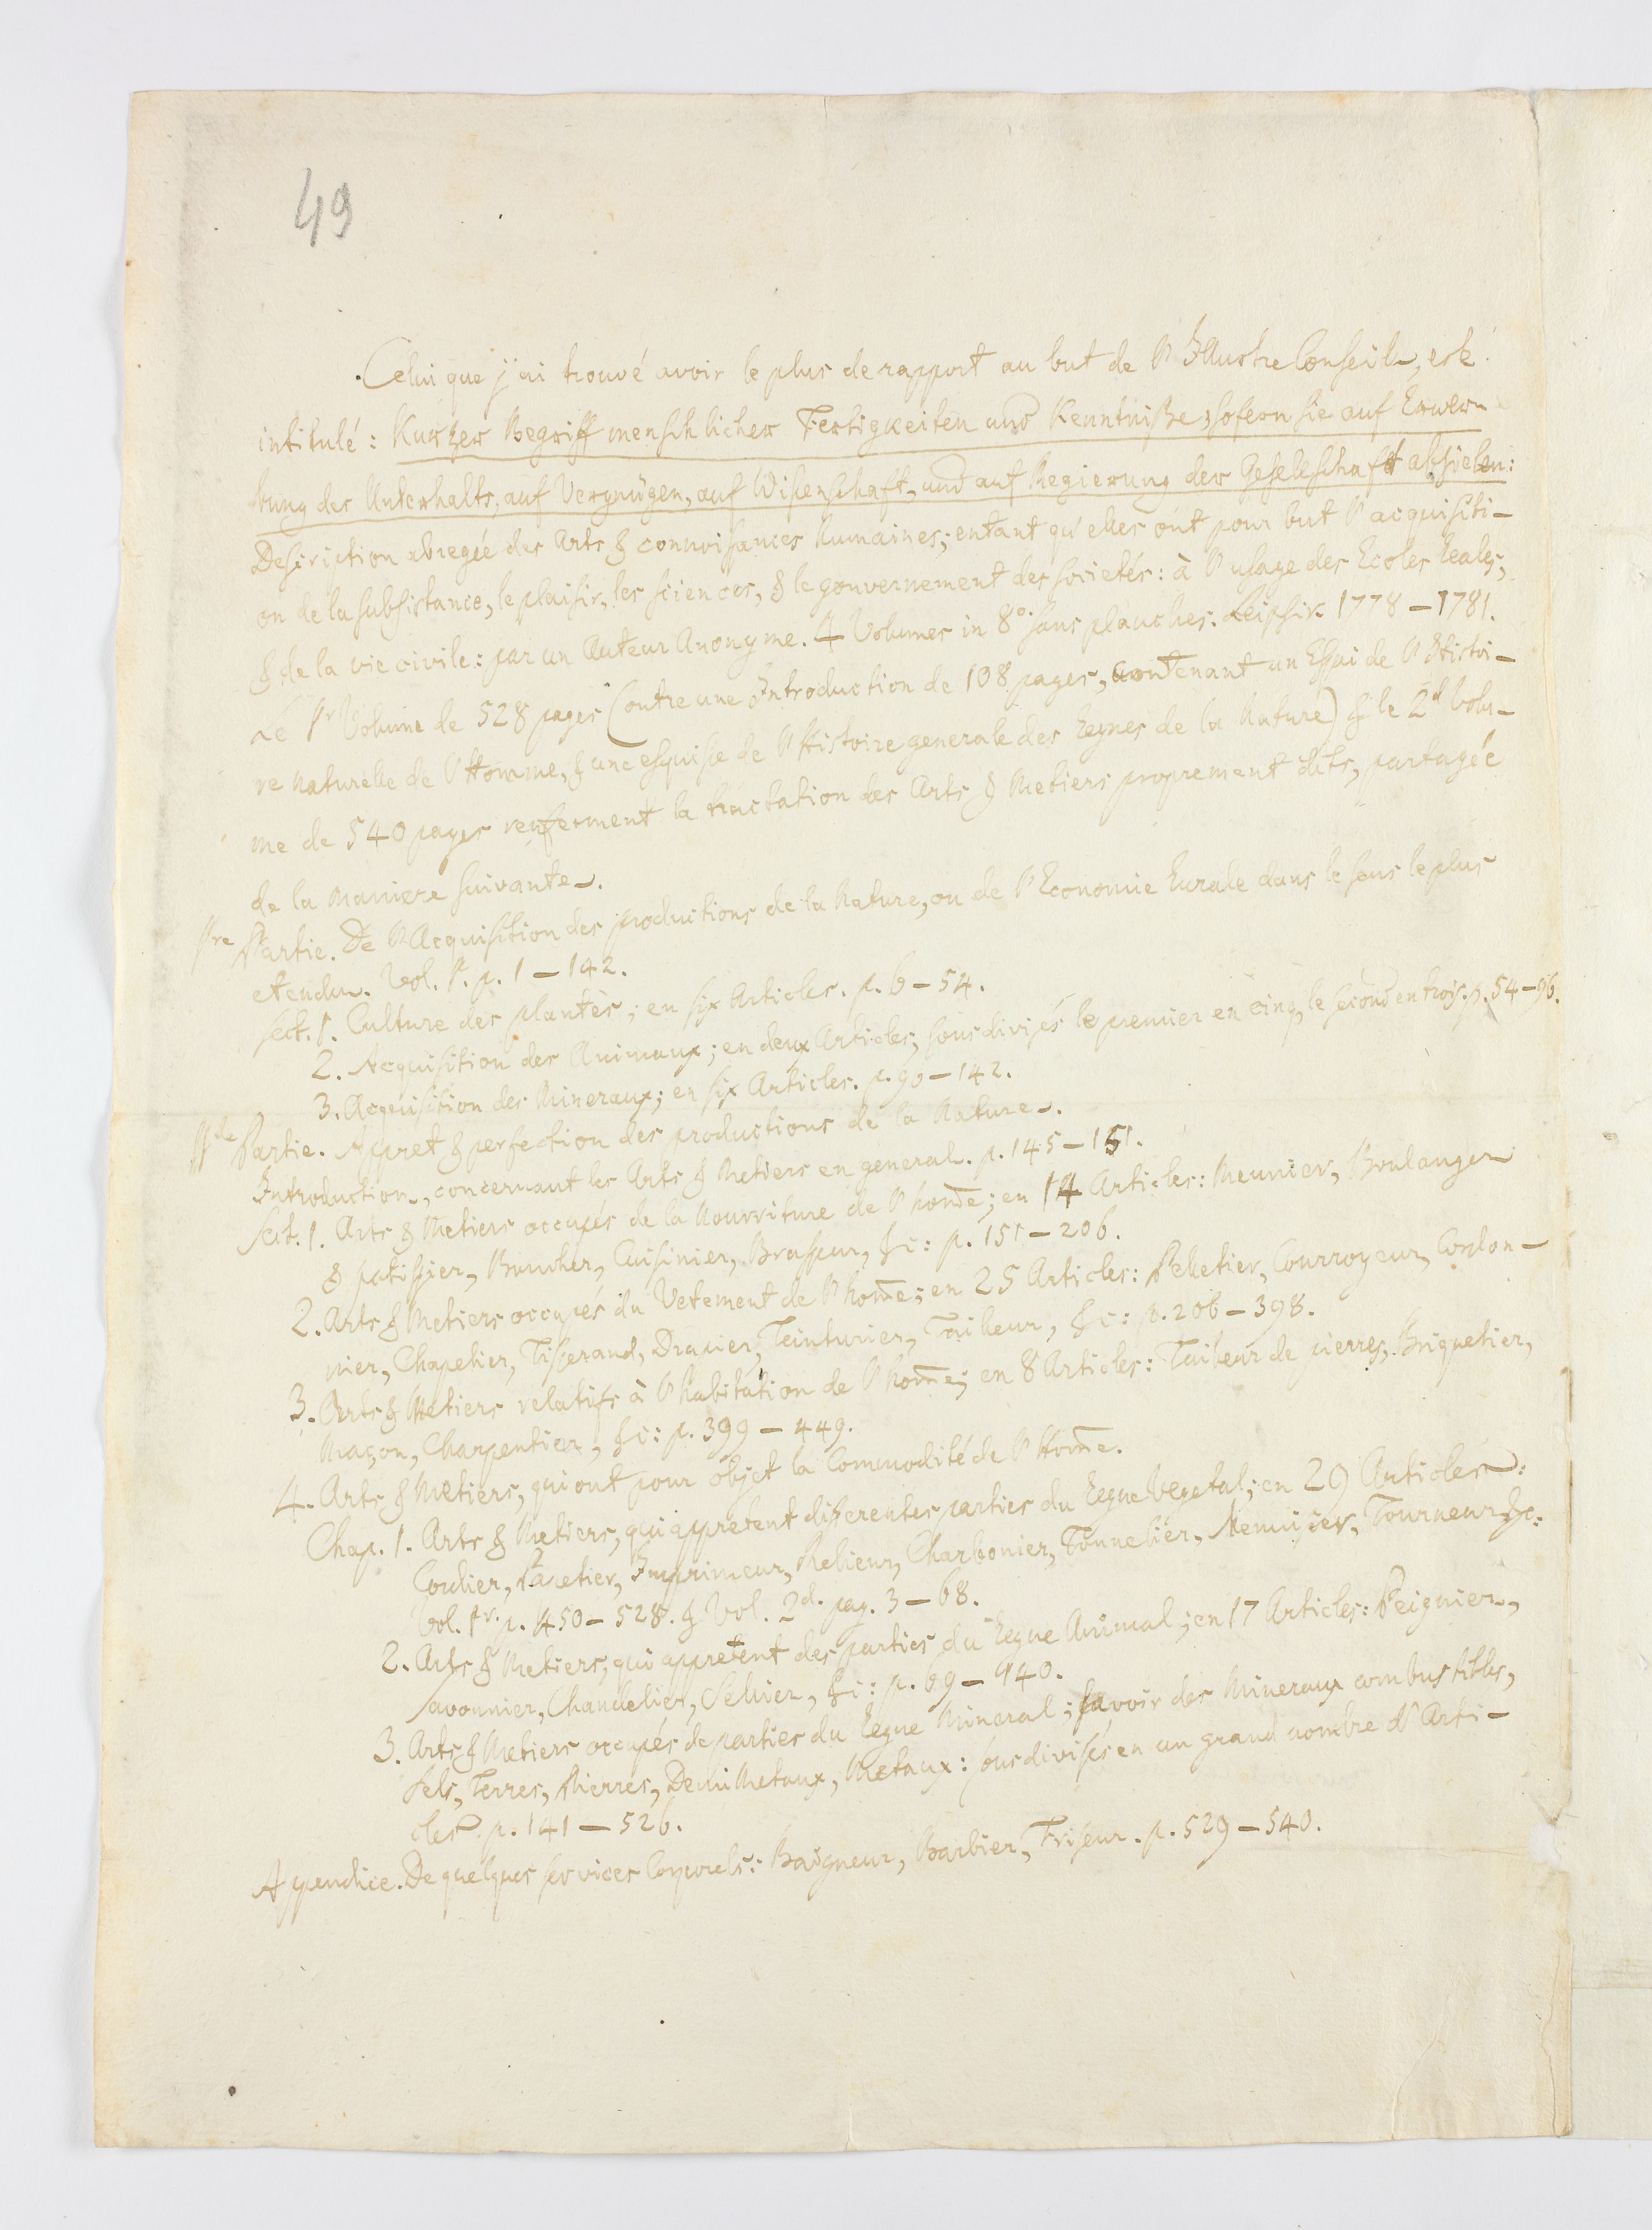 49
Celui que j'ai trouvé avoir le plus de rapport au but de l'Illustre Conseil, est
intitulé: Kurzer Begriff menschlicher Fertigkeiten und Kenntniße, sofern sie auf Erwer-
bung des Unterhalts, auf Vergnügen, auf Wißenschaft, und auf Regierung der Geselschaft abzielen:
Description abregée des Arts & connoissances humaines; entant qu'elles ont pour but l'acquisiti-
on de la subsistance, le plaisir, les sciences, & le gouvernement des societés: à l'usage des Ecoles reales,
& de la vie civile: par un Auteur Anonyme. 4 Volumes in 8º. sans planches: Leipsik 1778-1781.
Le 1r Volume de 528 pages (outre une Introduction de 108 pages, contenant un Essai de l'Histoi-
re Naturelle de l'Homme, & une esquisse de l'Histoire generale des Regnes de la Nature) & le 2d Volu-
me de 540 pages renferment la tractation des Arts & Metiers proprement dits, partagée
de la Maniere suivante.
Ire Partie. De l'Acquisition des productions de la Nature, ou de l'Economie Rurale dans le sens le plus
etendu. Vol. I. p. 1-142.
Sect. 1. Culture des plantes; en six Articles. p. 6-54.
2. Acquisition des Animaux; en deux Articles; sousdivisés le premier en cinq, le second en trois. p. 54-96.
3. Acquisition des Mineraux; en six Articles. p. 90-142.
IIde Partie. Appret & perfection des productions de la Nature.
Introduction, concernant les Arts & Metiers en general. p. 145-151.
Sect. 1. Arts & Metiers occupés de la Nourriture de l'hom̄e; en 14 Articles: Meunier, Boulanger
& patissier, Boucher, Cuisinier, Brasseur, &c: p. 151-206.
2. Arts & Metiers occupés du Vetement de l'hom̄e; en 25 Articles: Pelletier, Courroyeur, Cordon-
nier, Chapelier, Tisserand, Drapier, Teinturier, Tailleur, &c: p. 206-398.
3. Arts & Metiers relatifs à l'habitation de l'hom̄e; en 8 Articles: Tailleur de pierres, Briquetier,
Maçon, Charpentier, &c: p. 399-449.
4. Arts & Metiers, qui ont pour objet la Commodité de l'Hom̄e.
Chap. 1. Arts & Metiers, qui appretent differentes parties du Regne Vegetal; en 29 Articles:
Cordier, Papetier, Imprimeur, Relieur, Charbonier, Tonnelier, Menuisier, Tourneur &c:
Vol. 1r. p. 450-528. & Vol. 2d. pag. 3-68.
2. Arts & Metiers, qui appretent des parties du Regne Animal; en 17 Articles: Peignier,
Savonnier, Chandelier, Sellier, &c: p. 69-140.
3. Arts & Metiers occupés de parties du Regne Mineral; savoir des Mineraux combustibles,
Sels, Terres, Pierres, Demi Metaux, Metaux: sousdivisés en un grand nombre d'Arti-
cles. p. 141-526.
Appendice. De quelques services Corporels: Baigneur, Barbier, Friseur. p. 529-540.